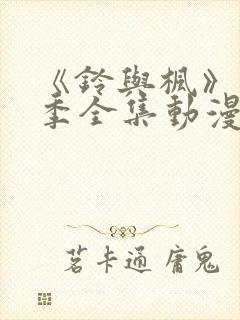 《鈴與楓》
季全集動漫
茗卡通 庸鬼